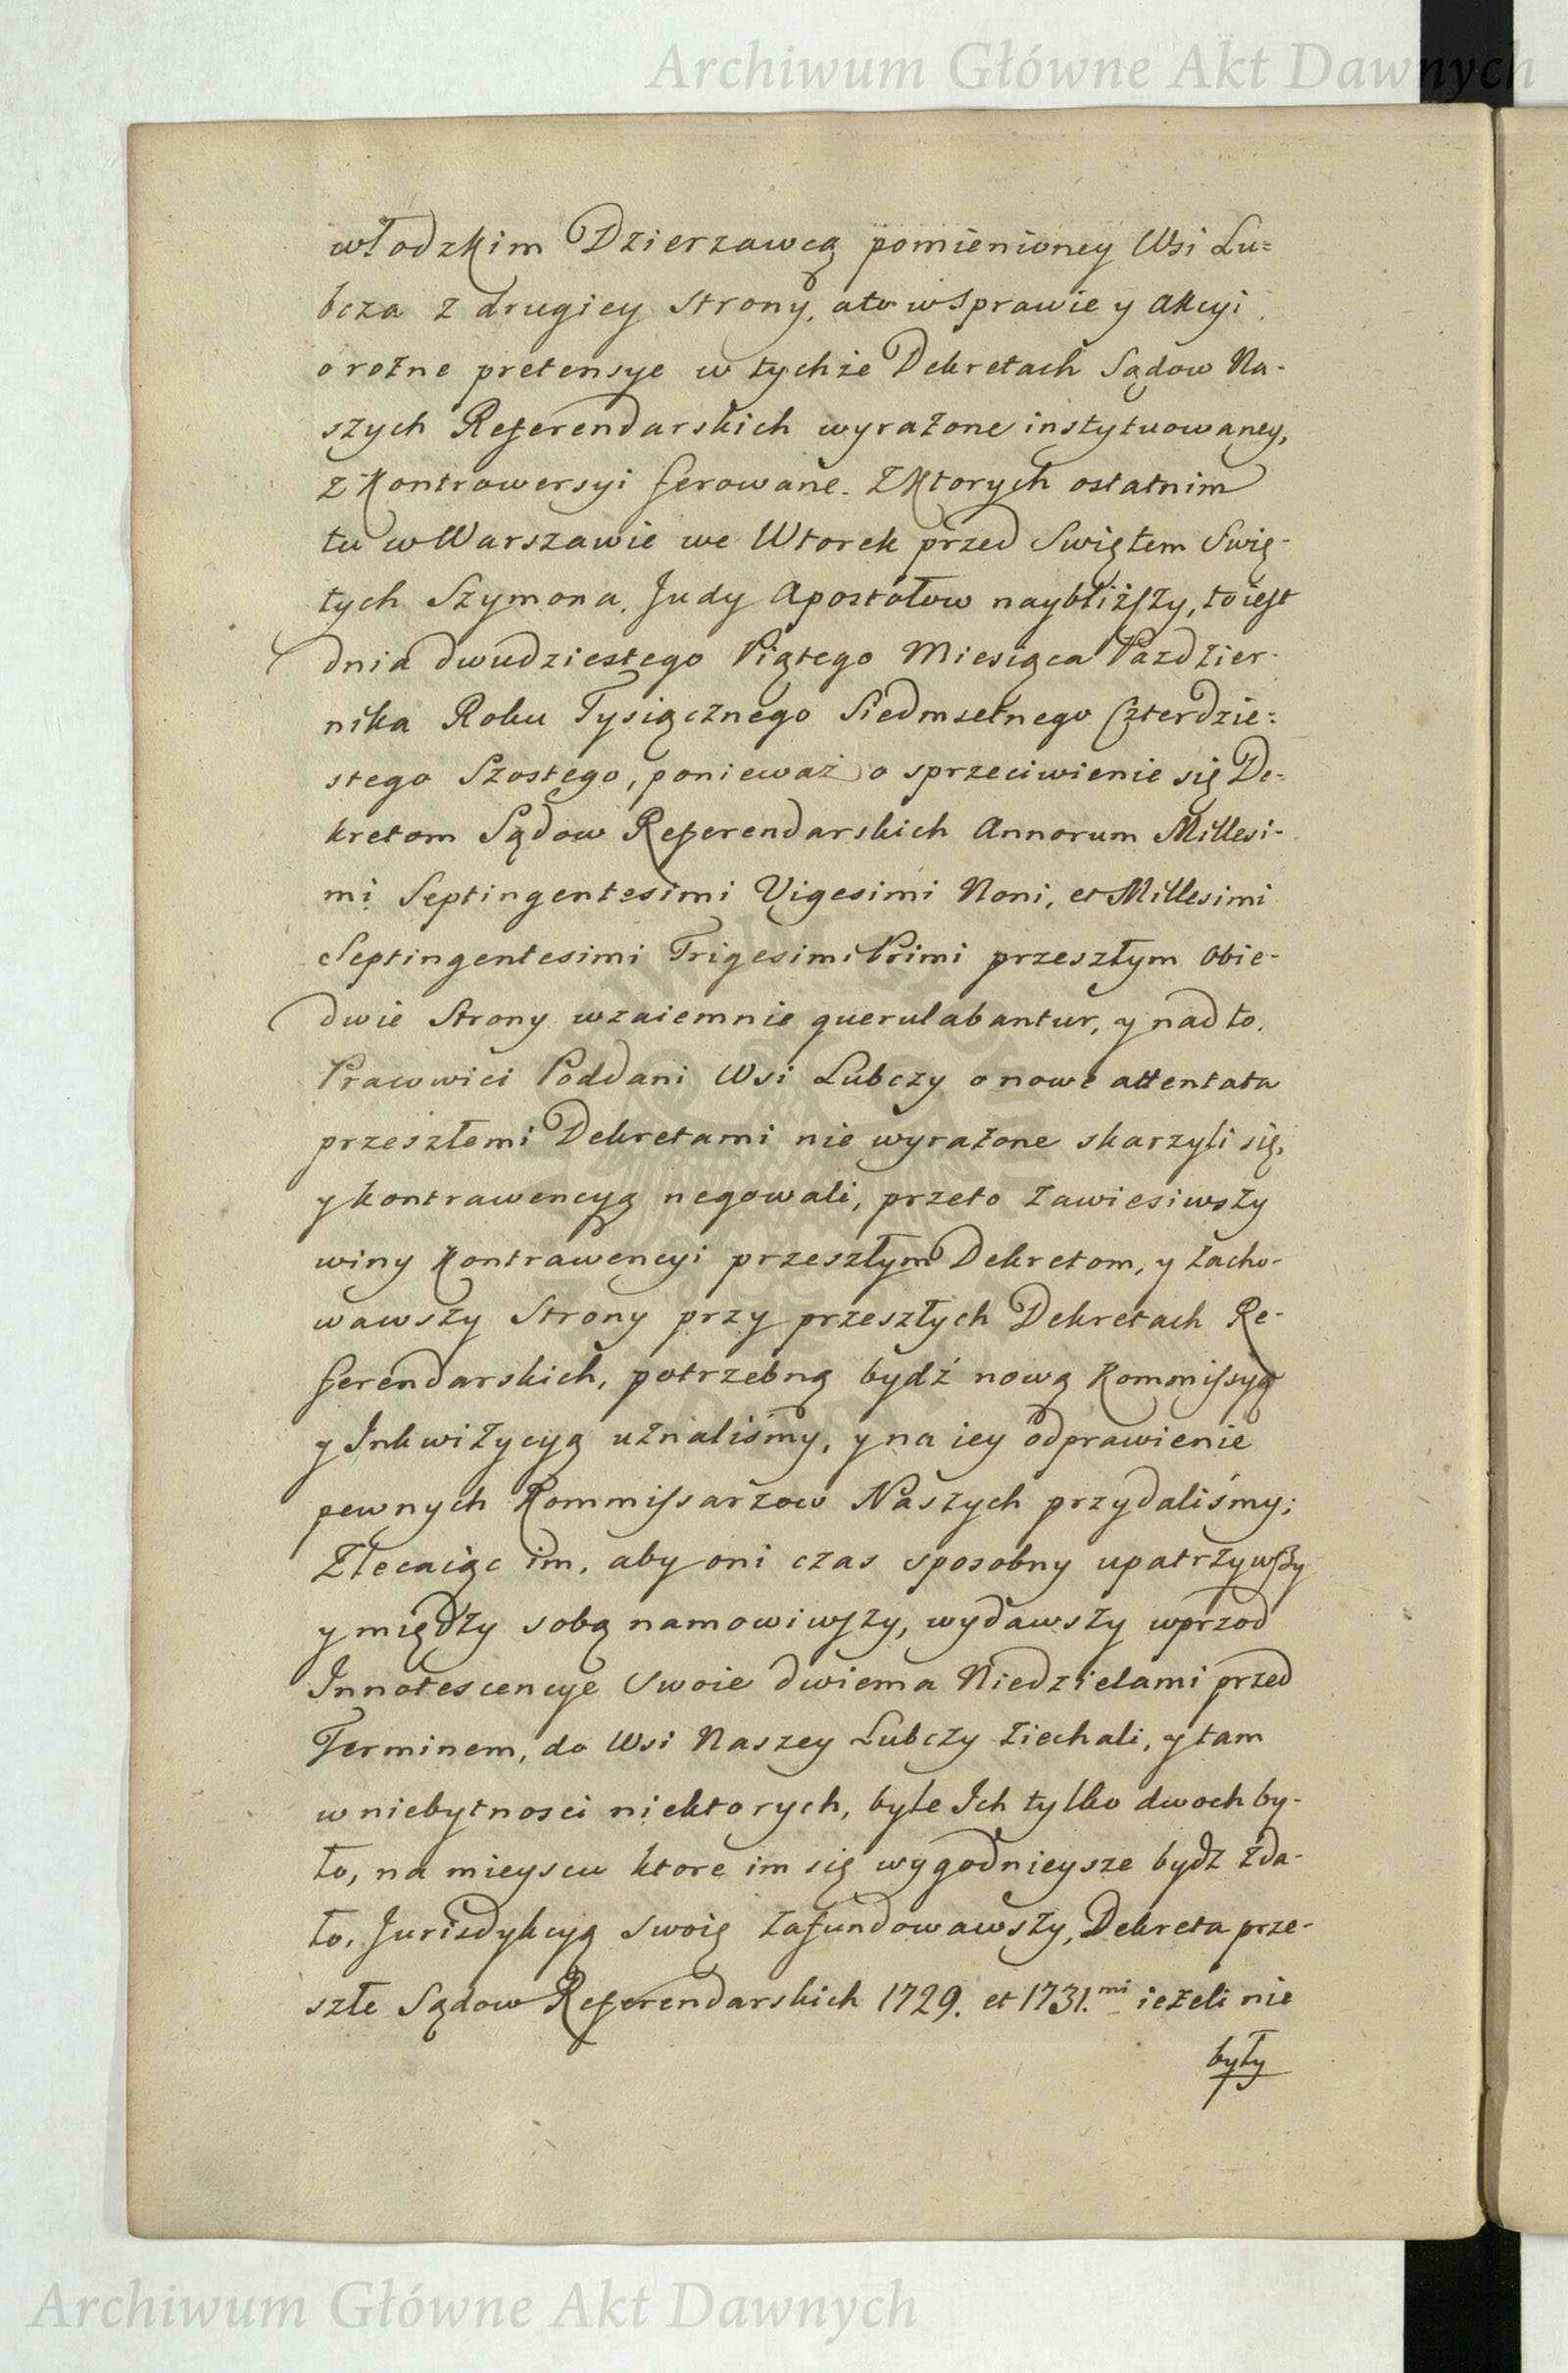 Archiwum Główne Akt Dawnych
włodzkim Dzierzawcą pomienioney Wsi Lu=
bcza z drugiey Strony, ato w Sprawie y Akcyi
o rożne pretensye w tychże Dekretach Sądow Na-
szych Referendarskich wyrażone instytuowaney,
z Kontrowersyi ferowane. Z Ktorych ostatnim
tu w Warszawie we Wtorek przed Swiętem Swię-
tych Szymona, Judy Apostołow naybliższy, to iest
dnia dwudziestego Piątego Miesiąca Pazdzier-
nika Roku Tysiącznego Siedmsetnego Czterdzie=
stego Szostego, ponieważ o sprzeciwienie się De=
kretom Sądow Referendarskich Annorum Millesi-
mi Septingentesimi Vigesimi Noni, et Millesimi
Septingentesimi Trigesimi Primi przeszłym Obie-
dwie Strony wzaiemnie querulabantur, y nad to,
Pracowici Poddani Wsi Lubczy o nowe attentata
przeszłemi Dekretami nie wyrażone skarzyli się,
y kontrawencyą negowali, przeto zawiesiwszy
winy Kontrawencyi przeszłym Dekretom, y zacho-
wawszy Strony przy przeszłych Dekretach Re-
ferendarskich, potrzebną bydź nową Kommissyą
y Inkwizycyą uznaliśmy, y na iey odprawienie
pewnych Kommissarzow Naszych przydaliśmy;
Zlecaiąc im, aby oni czas sposobny upatrzywszy
y między sobą namowiwszy, wydawszy wprzod
Innotescencye Swoie dwiema Niedzielami przed
Terminem, do Wsi Naszey Lubczy ziechali, y tam
w niebytnosci niektorych, byle Ich tylko dwoch by-
ło, na mieyscu ktore im się wygodnieysze bydź zda-
ło, Jurisdykcyą Swoię zafundowawszy, Dekreta prze-
szłe Sądow Referendarskich 1729. et 1731.mi ieżeli nie
były
Archiwum Główne Akt Dawnych